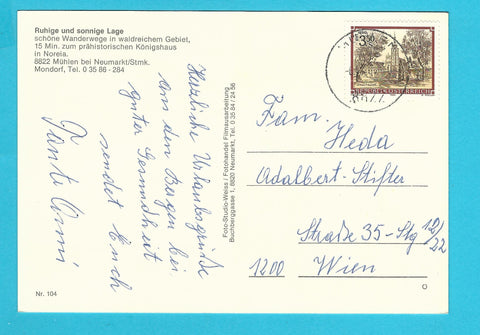 Ruhige und sonnige Lage
schöne Wanderwege in waldreichem Gebiet,
15 Min. zum prähistorischen Königshaus
in Noreia.
8822 Mühlen bei Neumarkt/Stmk.
Mondorf, Tel. 0 35 86 - 284
Herzliche Urlaubsgrüße
aus den Bergen bei
guter Gesundheit
sendet Euch
Tante Anni
Foto-Studio-Weiss / Fotohandel Filmausarbeitung
Buchberggasse 1, 8820 Neumarkt, Tel. 0 35 84 / 24 56
REPUBLIK ÖSTERREICH
8822
Fam.
Heda
Adalbert-Stifter
Straße 35-Stg 12/22
1200 Wien
Nr. 104